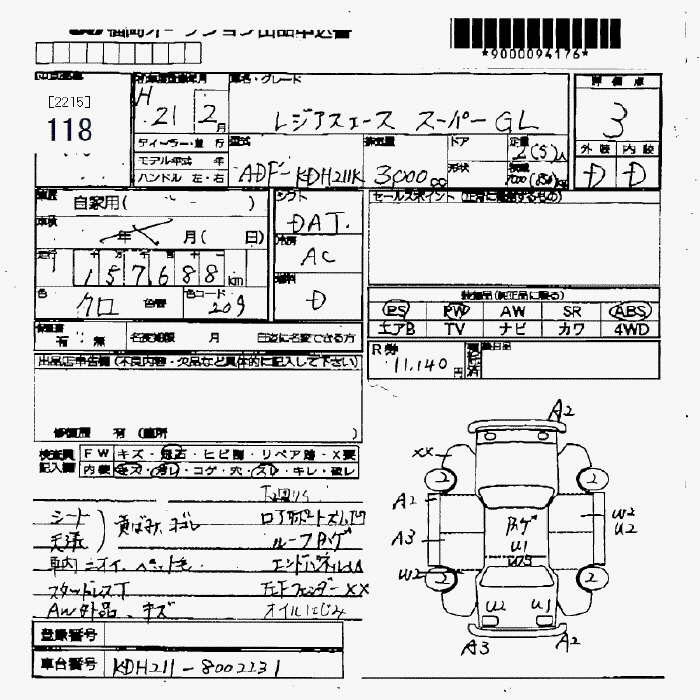 福岡オークション出品申込書
*9000094176*
[2215]
118
初年度登録年月
H 21 2月
車名・グレード
レジアスエース スーパーGL
評価点
3
外装 内装
D D
ディーラー・並行
モデル年式 年
ハンドル 左・右
型式
ADF-KDH211K
排気量
3,000cc
ドア
形状
定員
2(5)人
積載
自家用( )
車検
年 月( 日)
走行
157688km
色
クロ
色替
色コード
209
シフト
DAT.
冷房
AC
燃料
D
セールスポイント(正常に機能するもの)
装備品(純正品に限る)
PS PW AW SR ABS
エアB TV ナビ カワ 4WD
有・無
名変期限 月 日迄に名変できる方
R券
11,140円
出品店申告欄(不良内容・欠品など具体的に記入して下さい)
修復歴 有(箇所 )
検査員記入欄
FW キズ・飛石・ヒビ割・リペア跡・X要
内装 キズ・汚レ・コゲ・穴・スレ・キレ・破レ
シート
天張
黄ばみ、ヨゴレ
車内ニオイ、ペット毛
スタッドレスT
AW外品、キズ
ルーフサビ
オイルにじみ
A2
XX
2 2
A2
A3
W2
U1
W2
U2
2 2
U2 U1
A3 A2
登録番号
車台番号 KDH211-8002231